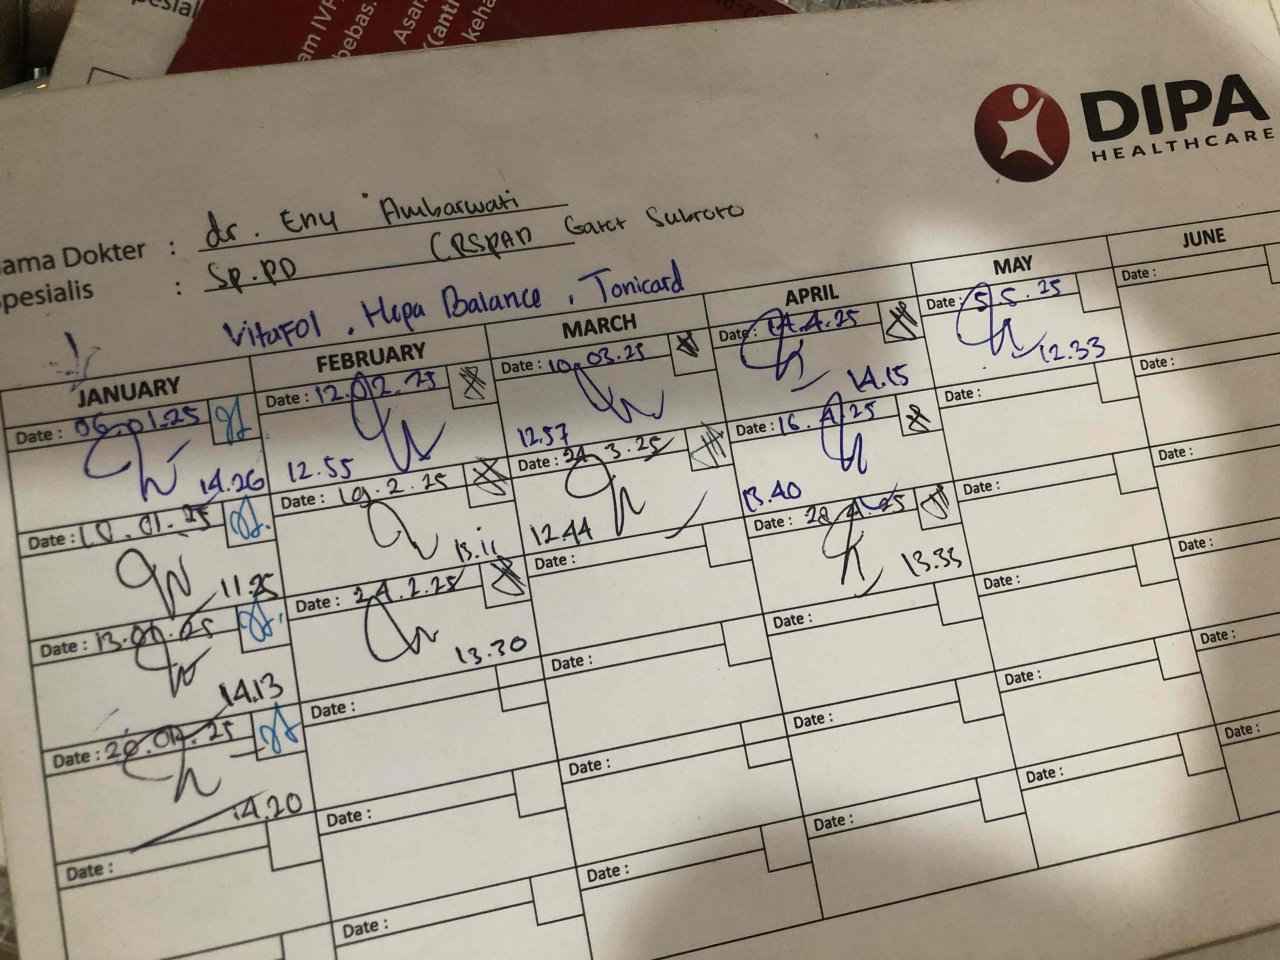 am IVF
bebas.
Asam
(anti
keha
DIPA
HEALTHCARE
ama Dokter : dr. Eny Ambarwati
pesialis : Sp.PD (RSPAD Gatot Subroto
Vitafol, Hepa Balance, Tonicard
JANUARY FEBRUARY MARCH APRIL MAY JUNE
Date : 06.01.25
14.26
Date : 10.01.25
11.25
Date : 13.01.25
14.13
Date : 20.01.25
14.20
Date :
Date : 12.02.25
12.55
Date : 19.2.25
13.11
Date : 24.2.25
13.30
Date :
Date :
Date :
Date : 10.03.25
12.57
Date : 24.3.25
12.44
Date :
Date :
Date :
Date :
Date : 14.4.25
14.15
Date : 16.4.25
13.40
Date : 28.4.25
13.33
Date :
Date :
Date :
Date : 5.5.25
12.33
Date :
Date :
Date :
Date :
Date :
Date :
Date :
Date :
Date :
Date :
Date :